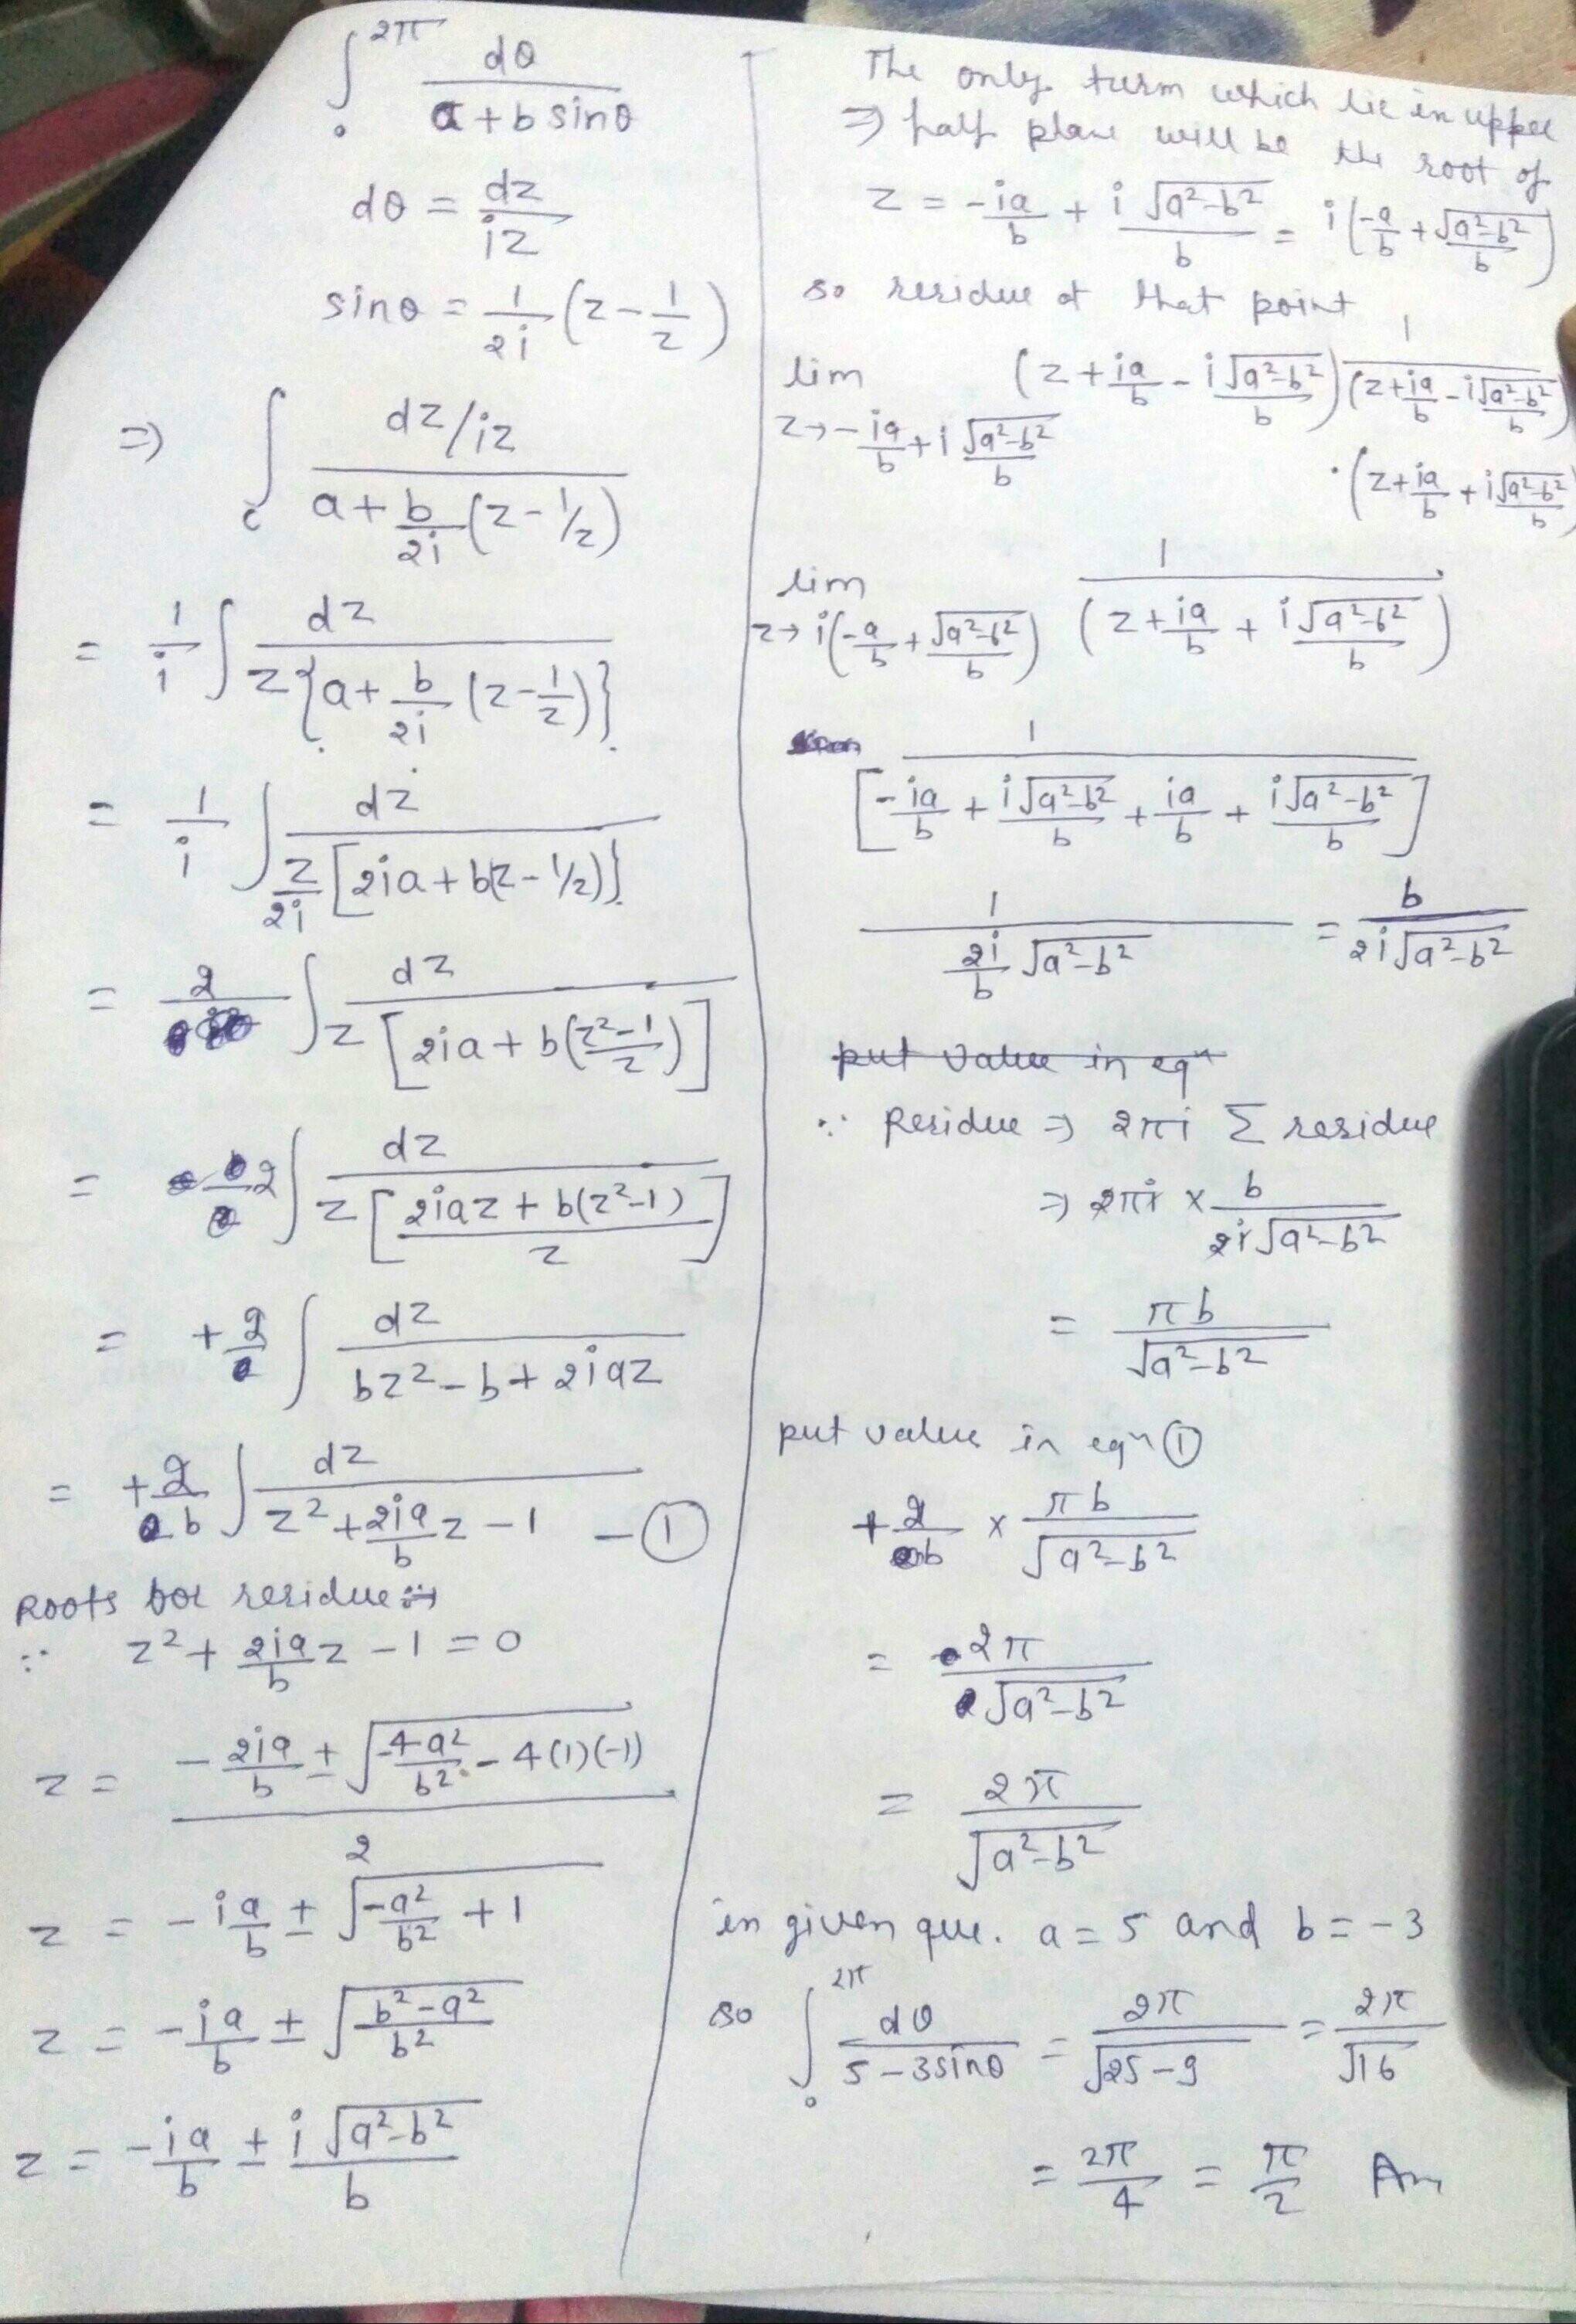 ∫₀^2π dθ / (a + b sinθ)
dθ = dz / iz
sinθ = 1/2i (z − 1/z)
⇒ ∫_c (dz/iz) / (a + b/2i (z − 1/z))
= 1/i ∫ dz / z{a + b/2i (z − 1/z)}
= 1/i ∫ dz / (z/2i [2ia + b(z − 1/z)})
= 2 ∫ dz / z[2ia + b((z² − 1)/z)]
= 2 ∫ dz / z[(2iaz + b(z² − 1))/z]
= + 2 ∫ dz / (bz² − b + 2iaz)
= + 2/b ∫ dz / (z² + 2ia/b z − 1) — ①
Roots for residue ⇒
∵ z² + 2ia/b z − 1 = 0
z = (− 2ia/b ± √(−4a²/b² − 4(1)(−1))) / 2
z = − ia/b ± √(−a²/b² + 1)
z = − ia/b ± √((b² − a²)/b²)
z = − ia/b ± i√(a² − b²)/b
The only turm which lie in upper
⇒ half plane will be the root of
z = − ia/b + i√(a² − b²)/b = i(−a/b + √(a² − b²)/b)
so residue at that point
lim z→ − ia/b + i√(a² − b²)/b (z + ia/b − i√(a² − b²)/b) 1 / (z + ia/b − i√(a² − b²)/b)
·(z + ia/b + i√(a² − b²)/b)
lim z→ i(−a/b + √(a² − b²)/b) 1 / (z + ia/b + i√(a² − b²)/b)
1 / [− ia/b + i√(a² − b²)/b + ia/b + i√(a² − b²)/b]
1 / (2i/b √(a² − b²)) = b / 2i√(a² − b²)
put value in eqⁿ
∵ Residue ⇒ 2πi Σ residue
⇒ 2πi × b / 2i√(a² − b²)
= πb / √(a² − b²)
put value in eqⁿ ①
+ 2/b × πb / √(a² − b²)
= 2π / √(a² − b²)
= 2π / √(a² − b²)
in given que. a = 5 and b = −3
so ∫₀^2π dθ / (5 − 3sinθ) = 2π / √(25 − 9) = 2π / √16
= 2π/4 = π/2 Ans